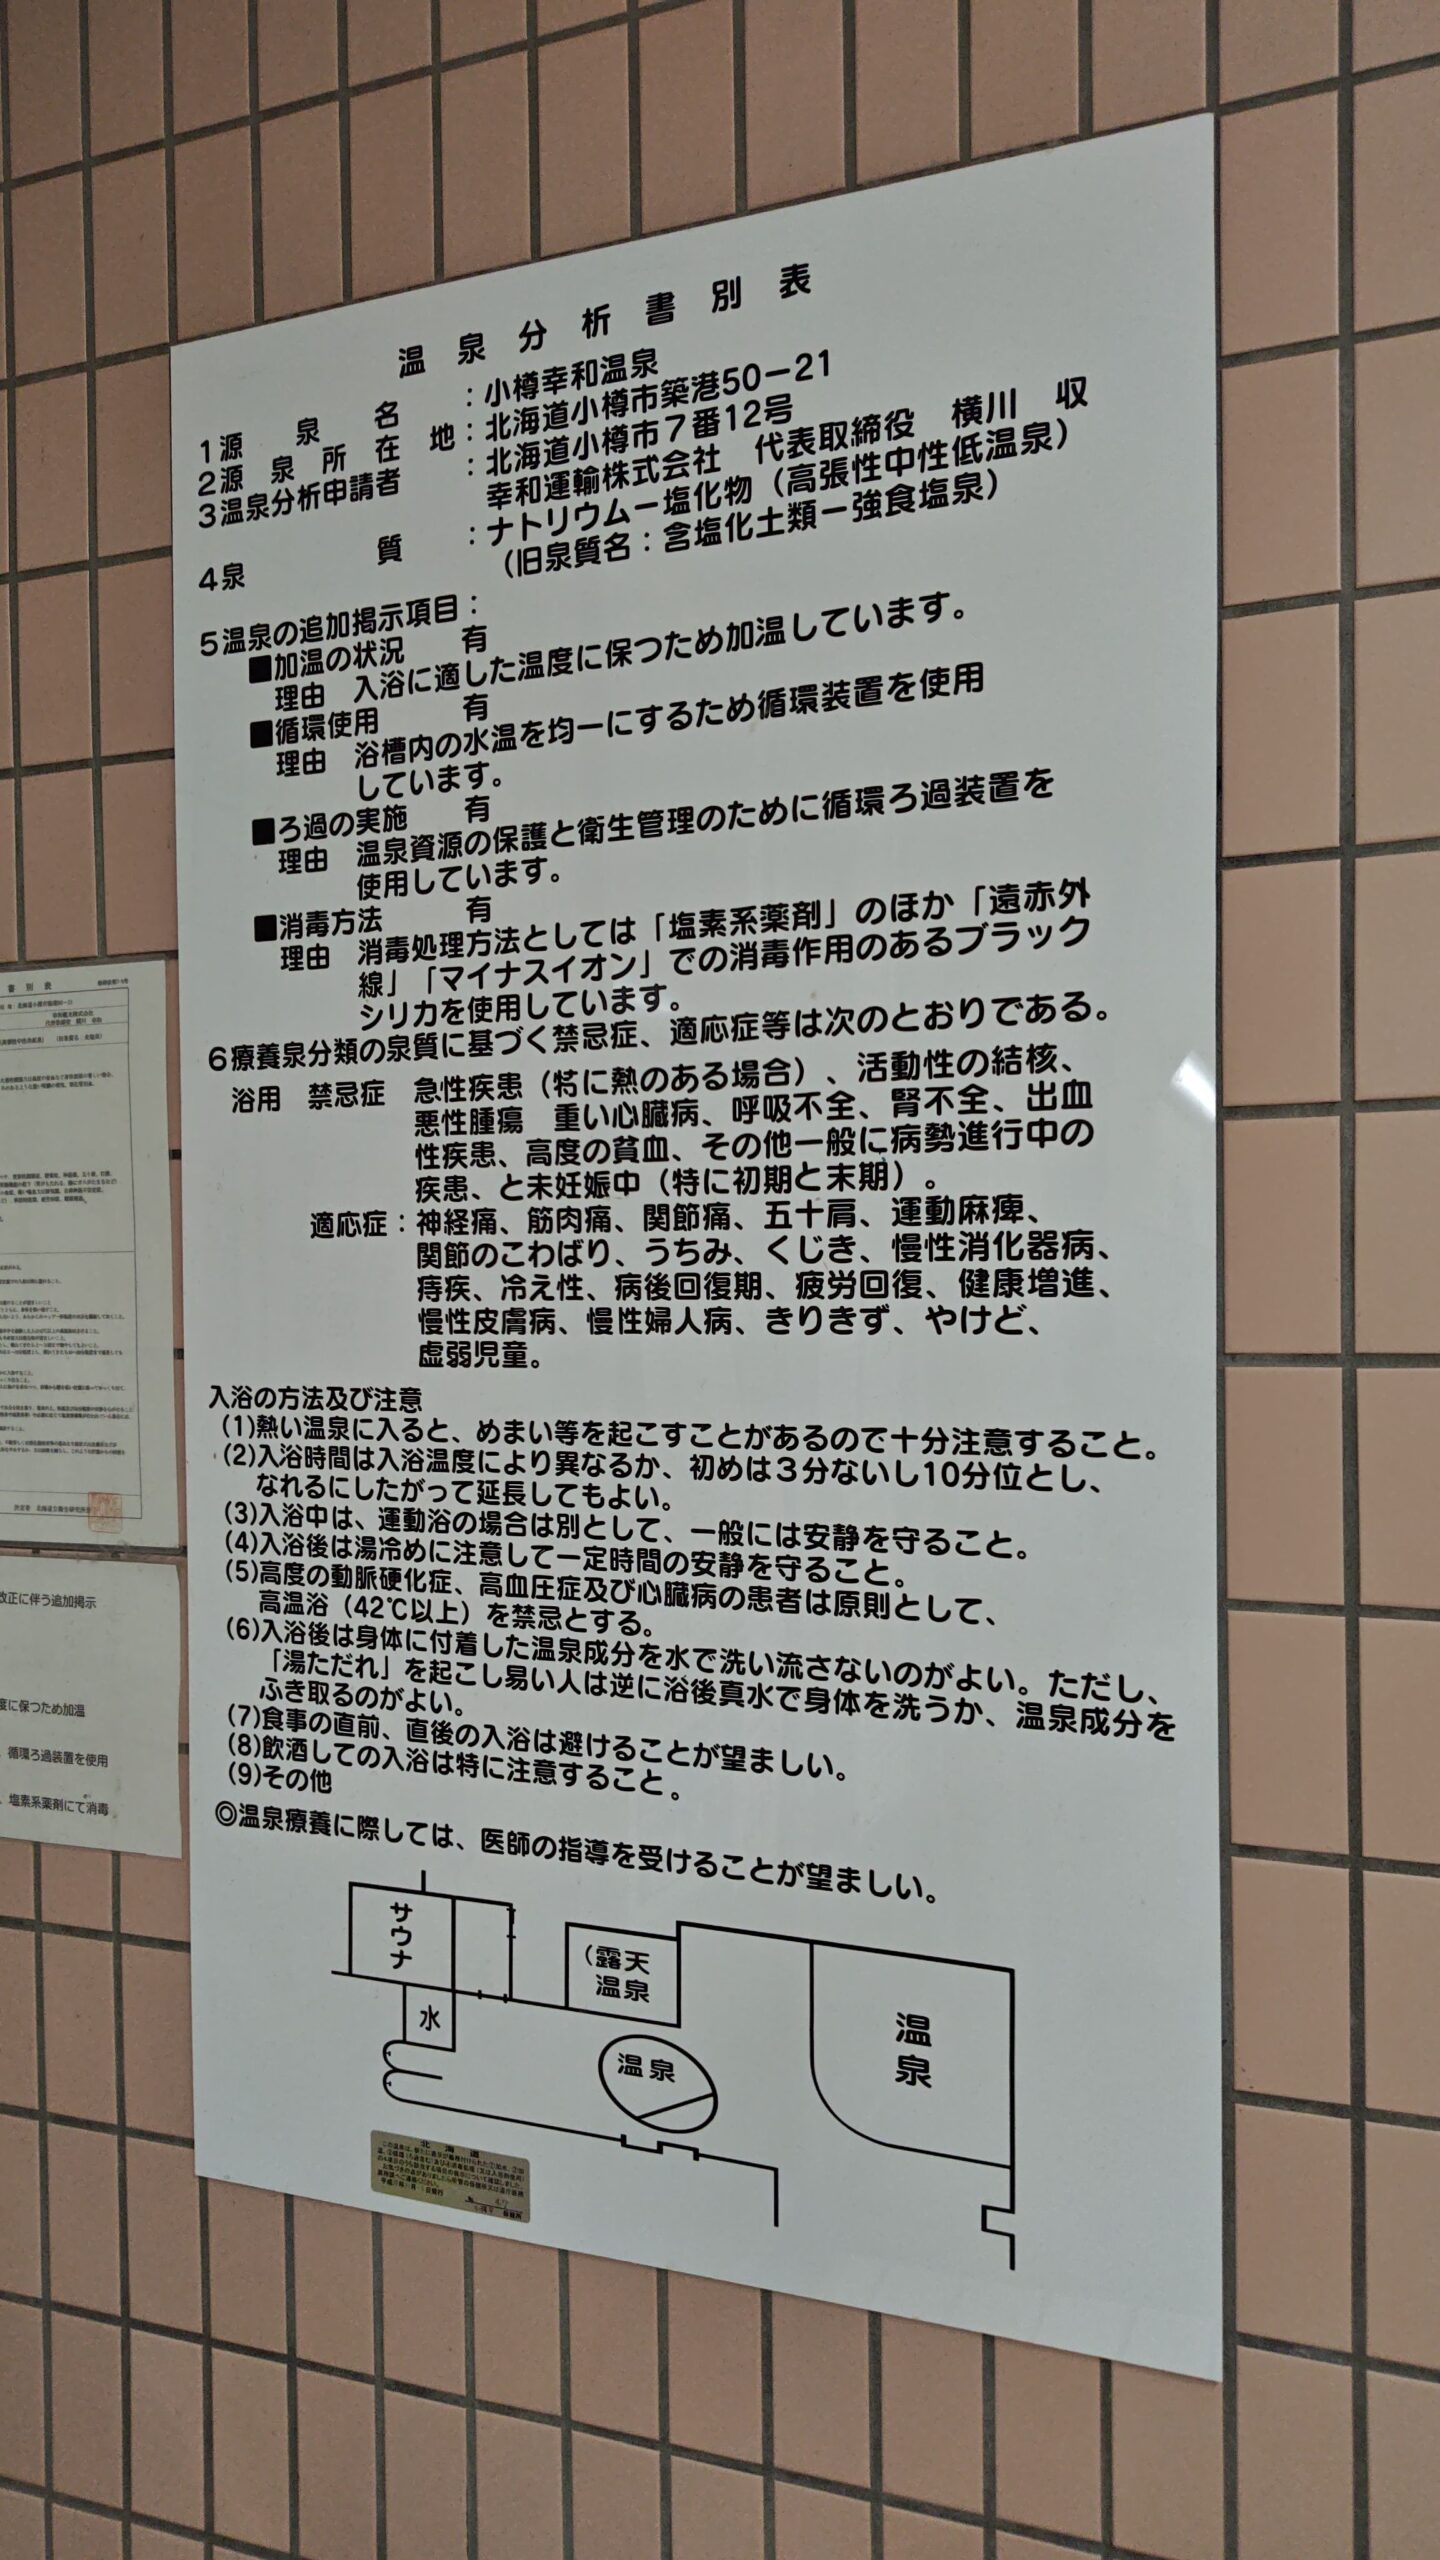 温泉分析書別表
1源泉名：小樽幸和温泉
2源泉所在地：北海道小樽市築港50－21
3温泉分析申請者：北海道小樽市7番12号
幸和運輸株式会社　代表取締役　横川　収
4泉質：ナトリウム－塩化物（高張性中性低温泉）
（旧泉質名：含塩化土類－強食塩泉）
5温泉の追加掲示項目：
■加温の状況　有
理由　入浴に適した温度に保つため加温しています。
■循環使用　有
理由　浴槽内の水温を均一にするため循環装置を使用
しています。
■ろ過の実施　有
理由　温泉資源の保護と衛生管理のために循環ろ過装置を
使用しています。
■消毒方法　有
理由　消毒処理方法としては「塩素系薬剤」のほか「遠赤外
線」「マイナスイオン」での消毒作用のあるブラック
シリカを使用しています。
6療養泉分類の泉質に基づく禁忌症、適応症等は次のとおりである。
浴用　禁忌症　急性疾患（特に熱のある場合）、活動性の結核、
悪性腫瘍　重い心臓病、呼吸不全、腎不全、出血
性疾患、高度の貧血、その他一般に病勢進行中の
疾患、と未妊娠中（特に初期と末期）。
適応症：神経痛、筋肉痛、関節痛、五十肩、運動麻痺、
関節のこわばり、うちみ、くじき、慢性消化器病、
痔疾、冷え性、病後回復期、疲労回復、健康増進、
慢性皮膚病、慢性婦人病、きりきず、やけど、
虚弱児童。
入浴の方法及び注意
(1)熱い温泉に入ると、めまい等を起こすことがあるので十分注意すること。
(2)入浴時間は入浴温度により異なるか、初めは3分ないし10分位とし、
なれるにしたがって延長してもよい。
(3)入浴中は、運動浴の場合は別として、一般には安静を守ること。
(4)入浴後は湯冷めに注意して一定時間の安静を守ること。
(5)高度の動脈硬化症、高血圧症及び心臓病の患者は原則として、
高温浴（42℃以上）を禁忌とする。
(6)入浴後は身体に付着した温泉成分を水で洗い流さないのがよい。ただし、
「湯ただれ」を起こし易い人は逆に浴後真水で身体を洗うか、温泉成分を
ふき取るのがよい。
(7)食事の直前、直後の入浴は避けることが望ましい。
(8)飲酒しての入浴は特に注意すること。
(9)その他
◎温泉療養に際しては、医師の指導を受けることが望ましい。
サウナ
水
（露天
温泉
温泉
温泉
北海道
書別表
改正に伴う追加掲示
度に保つため加温
循環ろ過装置を使用
、塩素系薬剤にて消毒